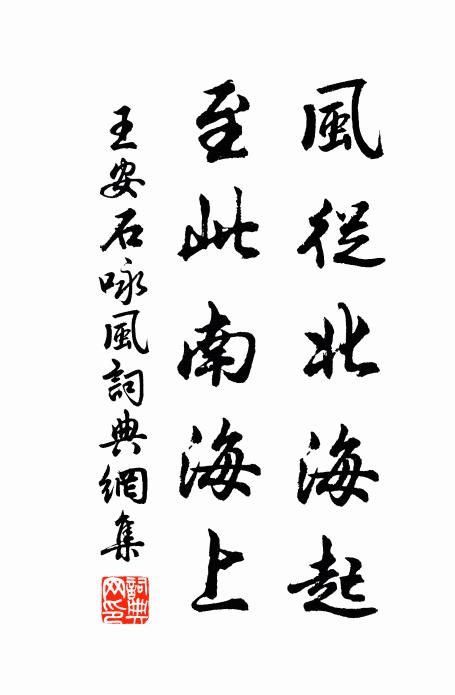 風從北海起
至此南海上
王安石咏風詞典網集
詞典網印